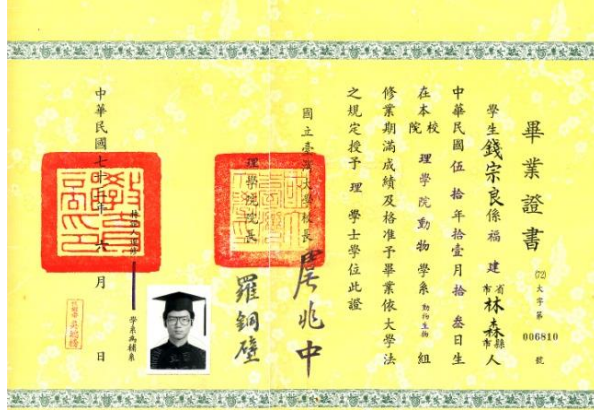 畢業證書
(72)大字第 006810 號
學生錢宗良係福建省市林森縣市人
中華民國伍拾年拾壹月拾叁日生
在本校院理學院動物學系動物生物組
修業期滿成績及格准予畢業依大學法
之規定授予理學士學位此證
國立臺灣大學校長虞兆中
理學院院長羅銅壁
學系為輔系
中華民國七十年六月 日